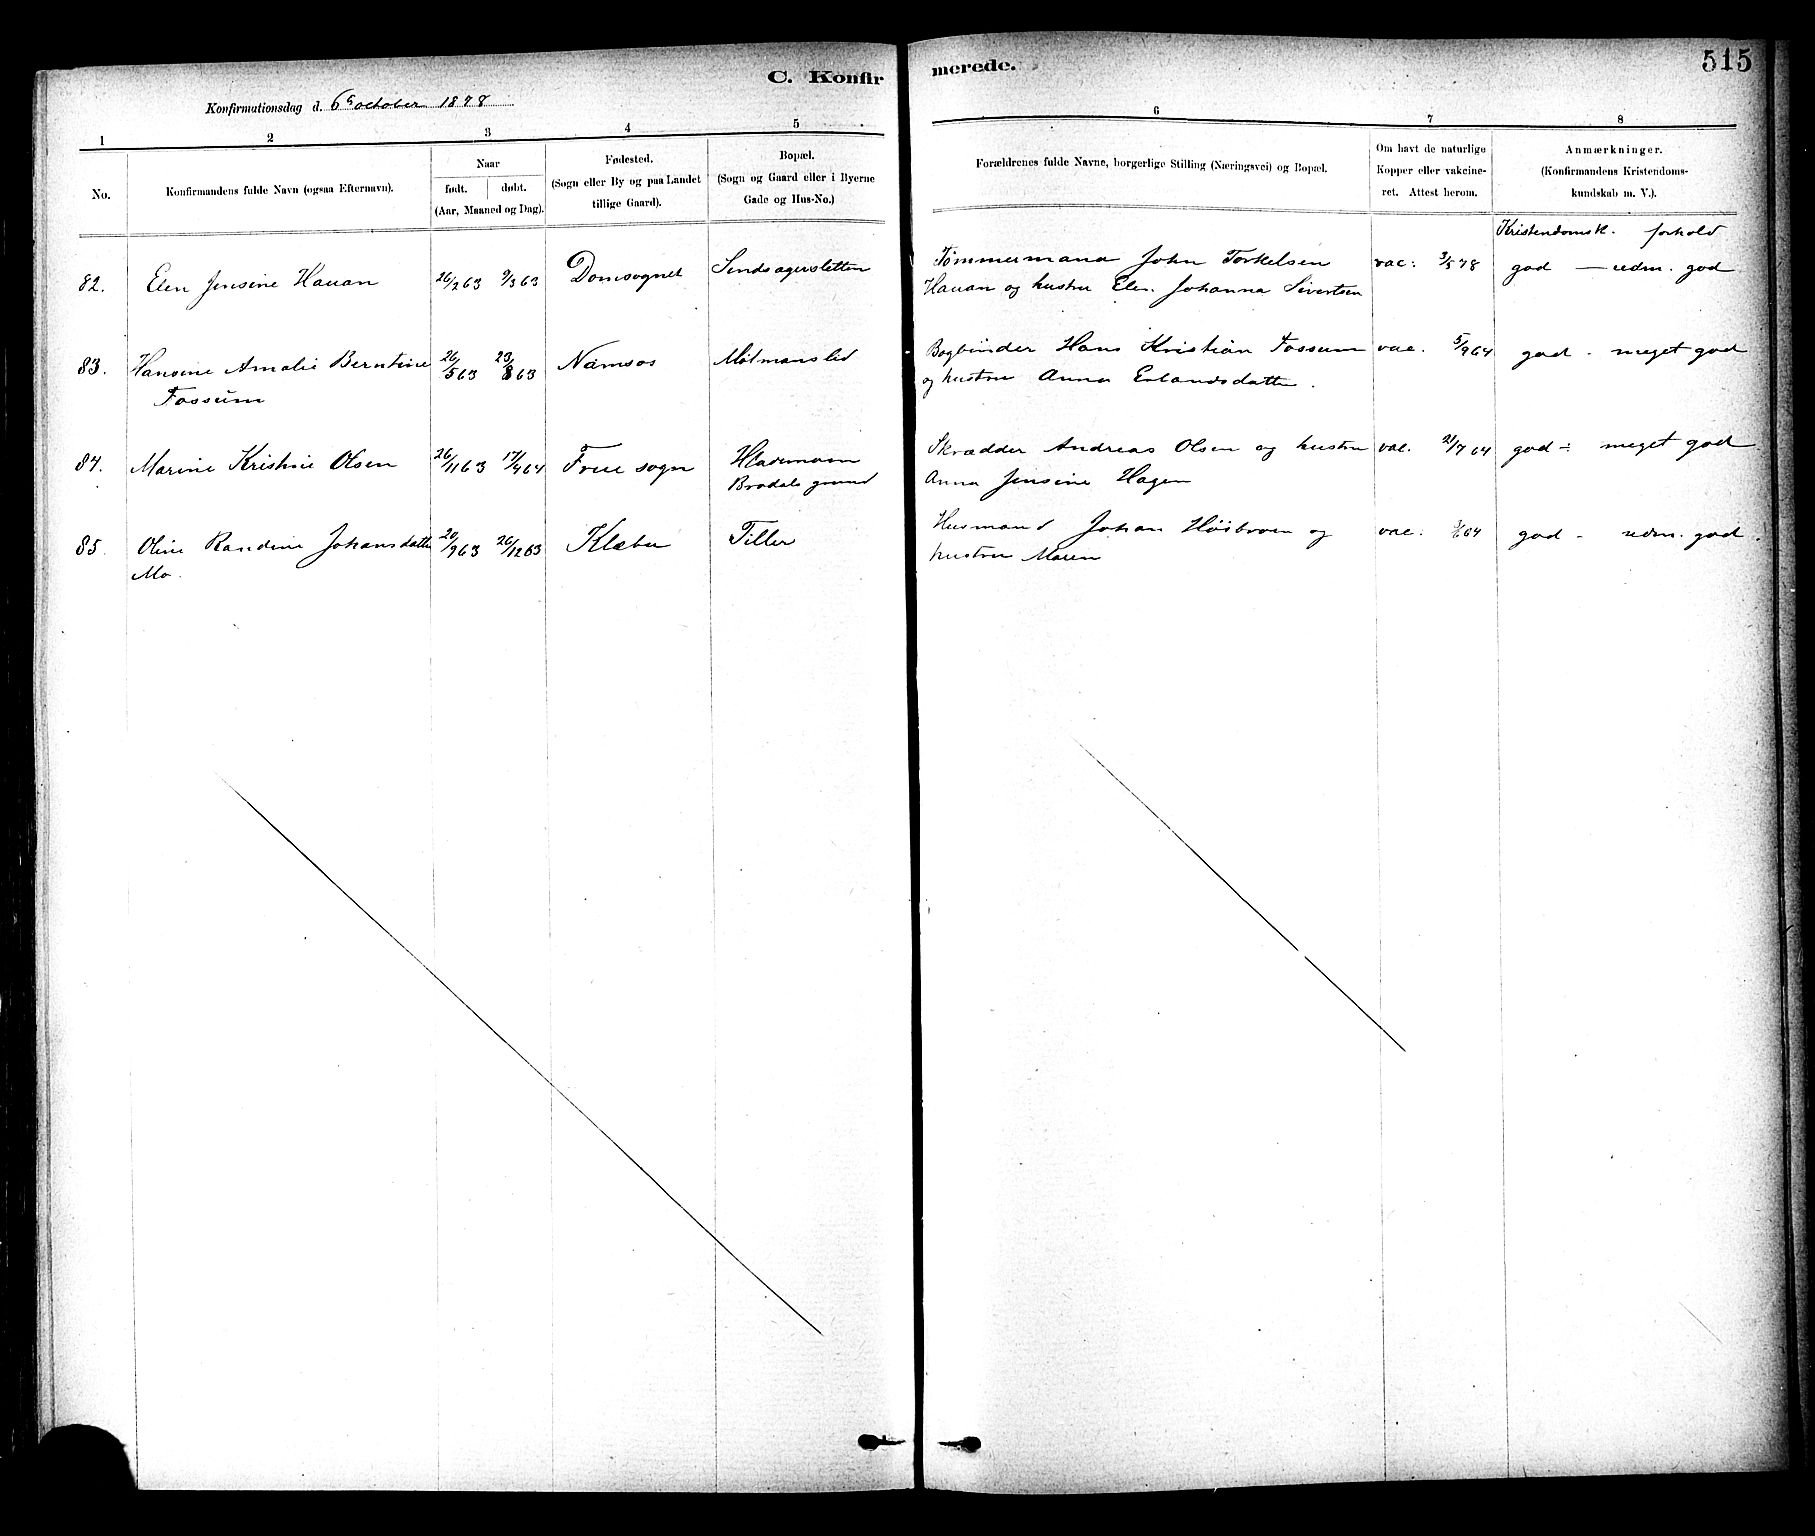 C. Konfir
merede.
515
Konfirmationsdag d. 6e october 1878
1 2 3 4 5 6 7 8
No.
Konfirmandens fulde Navn (ogsaa Efternavn).
Naar
født. døbt.
(Aar, Maaned og Dag).
Fødested.
(Sogn eller By og paa Landet
tillige Gaard).
Bopæl.
(Sogn og Gaard eller i Byerne
Gade og Hus-No.)
Forældrenes fulde Navne, borgerlige Stilling (Næringsvei) og Bopæl.
Om havt de naturlige
Kopper eller vakcine-
ret. Attest herom.
Anmærkninger.
(Konfirmandens Kristendoms-
kundskab m. V.).
Kristendomsk. forhold
82. Elen Jensine Hauan 26/2 63 9/3 63 Domsognet Tømmermand John Torkelsen vac: 3/5 78 god — udm. god
Hauan og hustru Elen Johanna Sivertsen
83. Hansine Amalie Berntine 26/5 63 23/8 63 Namsos Møllmanslid Bogbinder Hans Kristian Fossum vac. 5/9 64 god - meget god
Fossum og hustru Anna Erlandsdatter.
84. Marine Kristine Olsen 26/11 63 17/4 64 Frue sogn Skrædder Andreas Olsen og hustru vac. 21/7 64 god - meget god
Brodals grund Anna Jensine Hagen
85. Oline Randine Johansdatter 20/9 63 26/12 63 Klæbu Tiller Husmand Johan og vac: god - udm. god.
Mo. hustru Maren